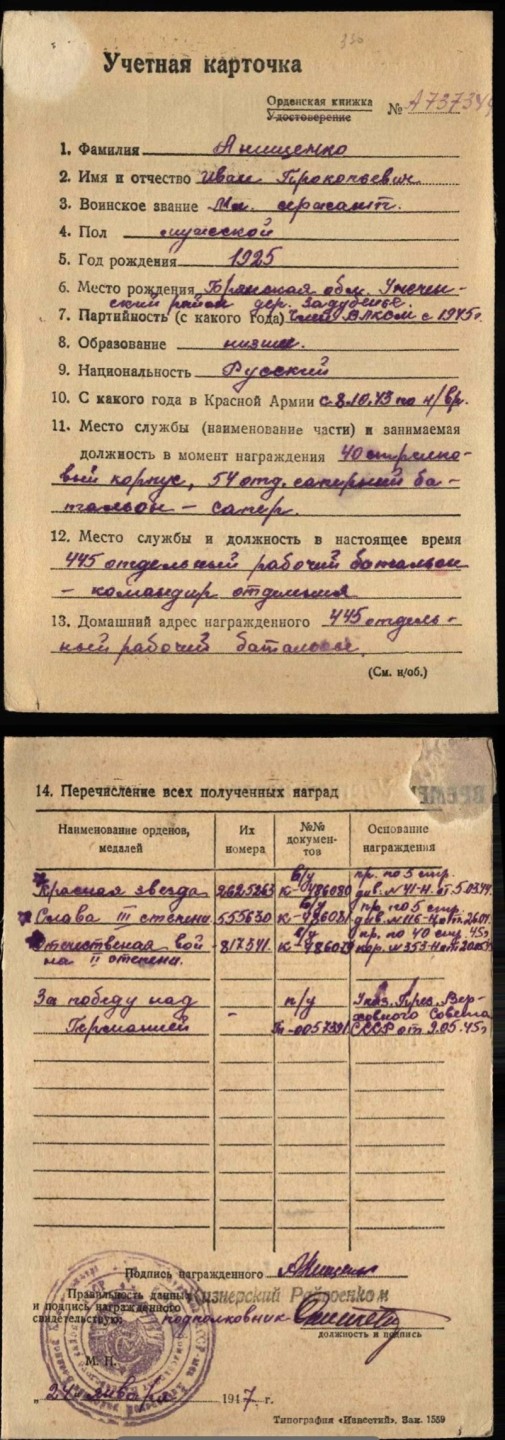 Учетная карточка
Орденская книжка
Удостоверение
№ А737349
1. Фамилия Анищенко
2. Имя и отчество Иван Прокопьевич
3. Воинское звание Мл. сержант.
4. Пол мужской
5. Год рождения 1925
6. Место рождения Брянская обл. Унечен-
ский район дер. Задубенье.
7. Партийность (с какого года) Член ВЛКСМ с 1945г.
8. Образование низшее.
9. Национальность Русский
10. С какого года в Красной Армии с 8.10.43 по н/вр.
11. Место службы (наименование части) и занимаемая
должность в момент награждения 40 стрелко-
вый корпус, 54 отд. саперный ба-
тальон – сапер.
12. Место службы и должность в настоящее время
445 отдельный рабочий батальон
– командир отделения
13. Домашний адрес награжденного 445 отдель-
ный рабочий батальон.
(См. н/об.)
14. Перечисление всех полученных наград
Наименование орденов, медалей
Их номера
№№ документов
Основание награждения
Красная звезда 2625263 в/у К-486080 пр. по 5 стр. див. №41-Н от 5.03.44.
Слава III степени. 555630 в/у К- пр. по 5 стр. див. №116-Н от
Отечественая вой-
на II степени. 817341 в/у К- пр. по 40 стр. кор. №353-Н от
За победу над
Германией - п/у 0057391 Указ. През. Вер-
ховного Совета
СССР от 9.05.45г
Подпись награжденного
Правильность данных
и подпись награжденного
свидетельствую: подполковник
Кизнерский Райвоенком
должность и подпись
М. П.
„24" января 1947 г.
Типография «Известий». Зак. 1559